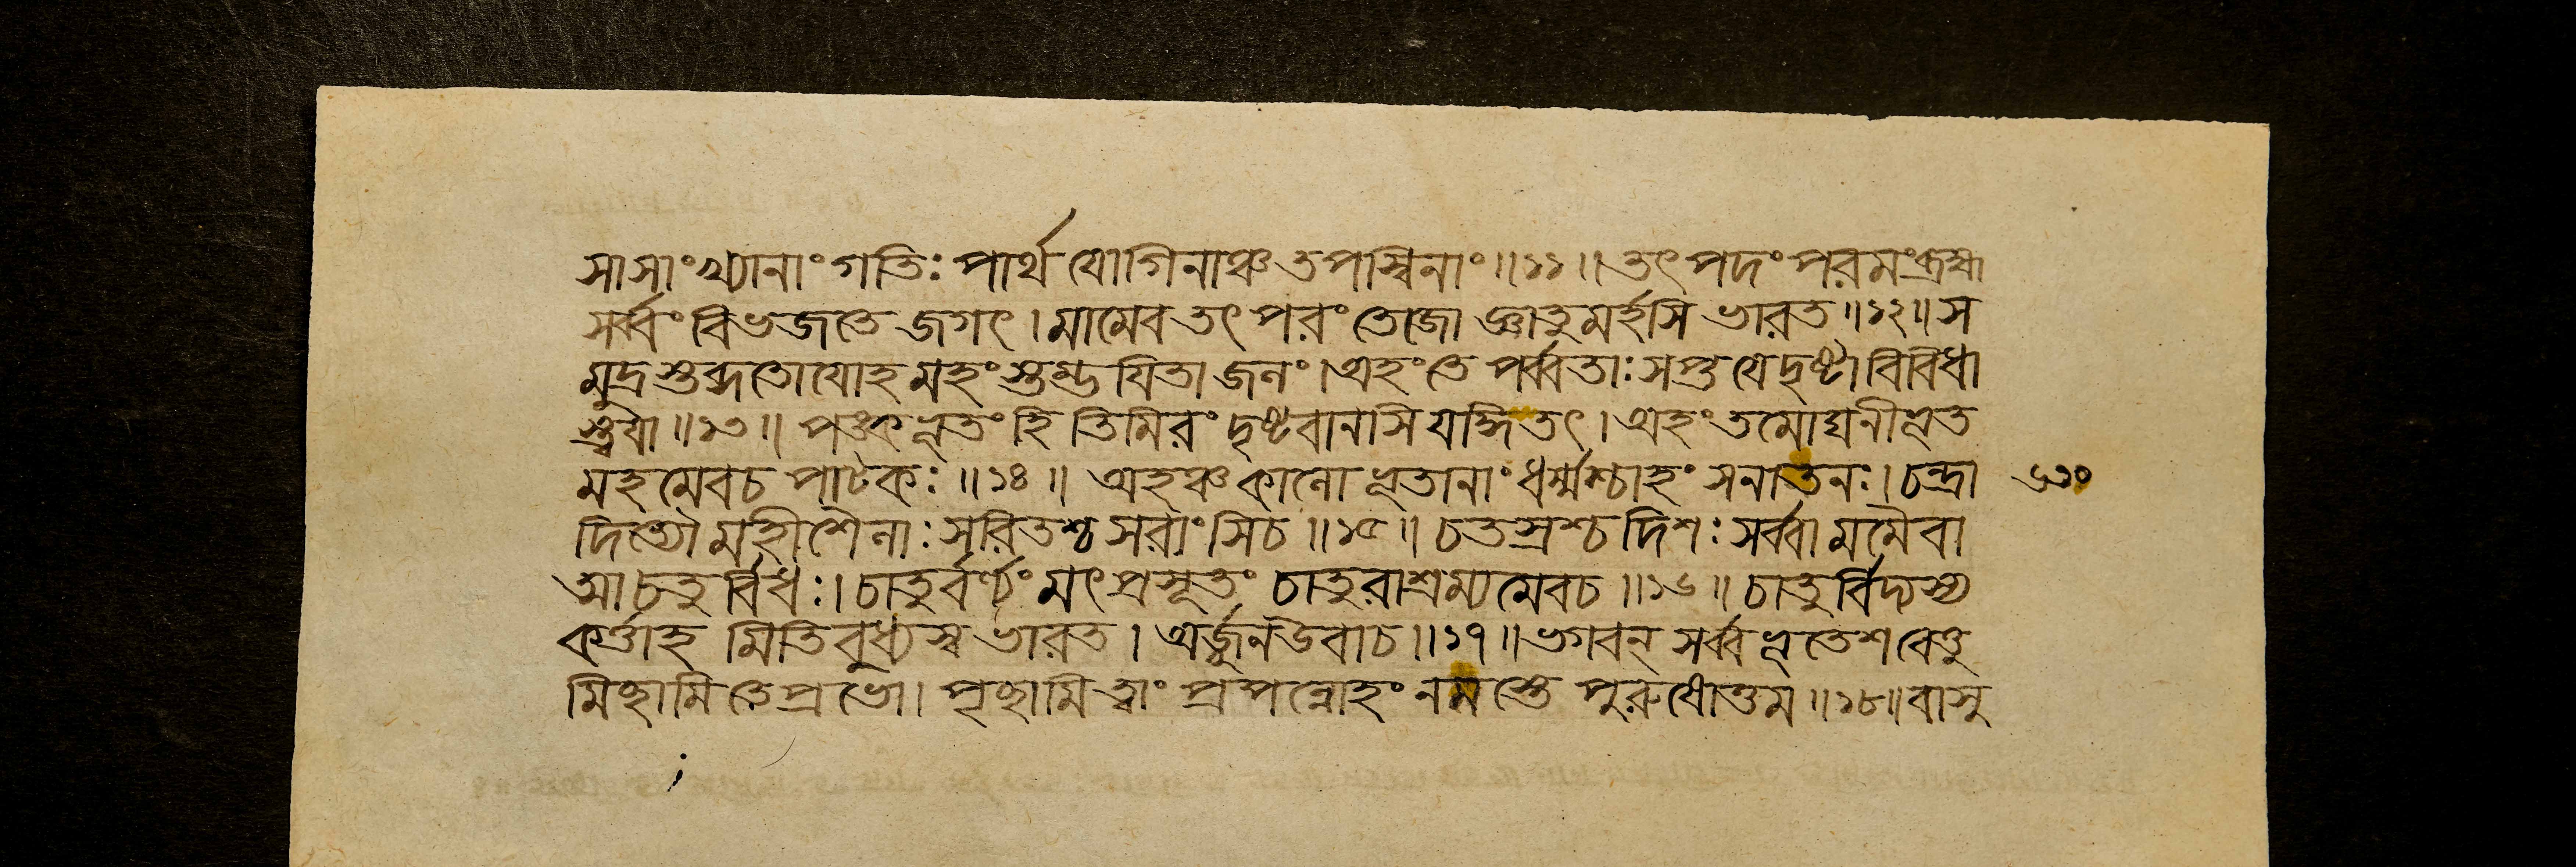 সাসাংখ্যানাংগতিঃ পার্থ যোগিনাঞ্চ তপস্বিনাং॥১১॥ তৎ পদং পরমংব্রহ্ম
সর্ব্বং বিভজতে জগৎ। মামেব তৎ পরং তেজো জ্ঞাতুমর্হসি ভারত॥১২॥ স
মুদ্রশ্তব্দতোযোহ মহংস্তম্ভ যিতা জনং। অহং তে পর্ব্বতাঃ সপ্ত যে দৃষ্টা বিবিধা
স্ত্বযা॥১৩॥ পঙ্কভূতং হি তিমিরং দৃষ্টবানসি যদ্ধিতৎ। অহং তমোঘনীভূত
মহমেবচ পাটকঃ॥১৪॥ অহঞ্চ কালো ভূতানাং ধর্ম্মশ্চাহং সনাতনঃ। চন্দ্রা
দিত্যৌ মহীশৈলাঃ সরিতশ্চ সরাংসিচ॥১৫॥ চতস্রশ্চ দিশঃ সর্ব্বা মমৈবা
আ চতুর্বিধঃ। চাতুর্বর্ণ্যং মৎপ্রসূতং চাতুরাশ্রম্যমেবচ॥১৬॥ চাতুর্বিদ্যস্য
কর্ত্তাহ মিতিবুধ্যস্ব ভারত। অর্জ্জুনউবাচ॥১৭॥ ভগবন্ সর্ব্ব ভূতেশ বেত্তু
মিচ্ছামি তে প্রভো। পৃচ্ছামি ত্বাং প্রপন্নোহং নমস্তে পুরুষোত্তম॥১৮॥ বাসু